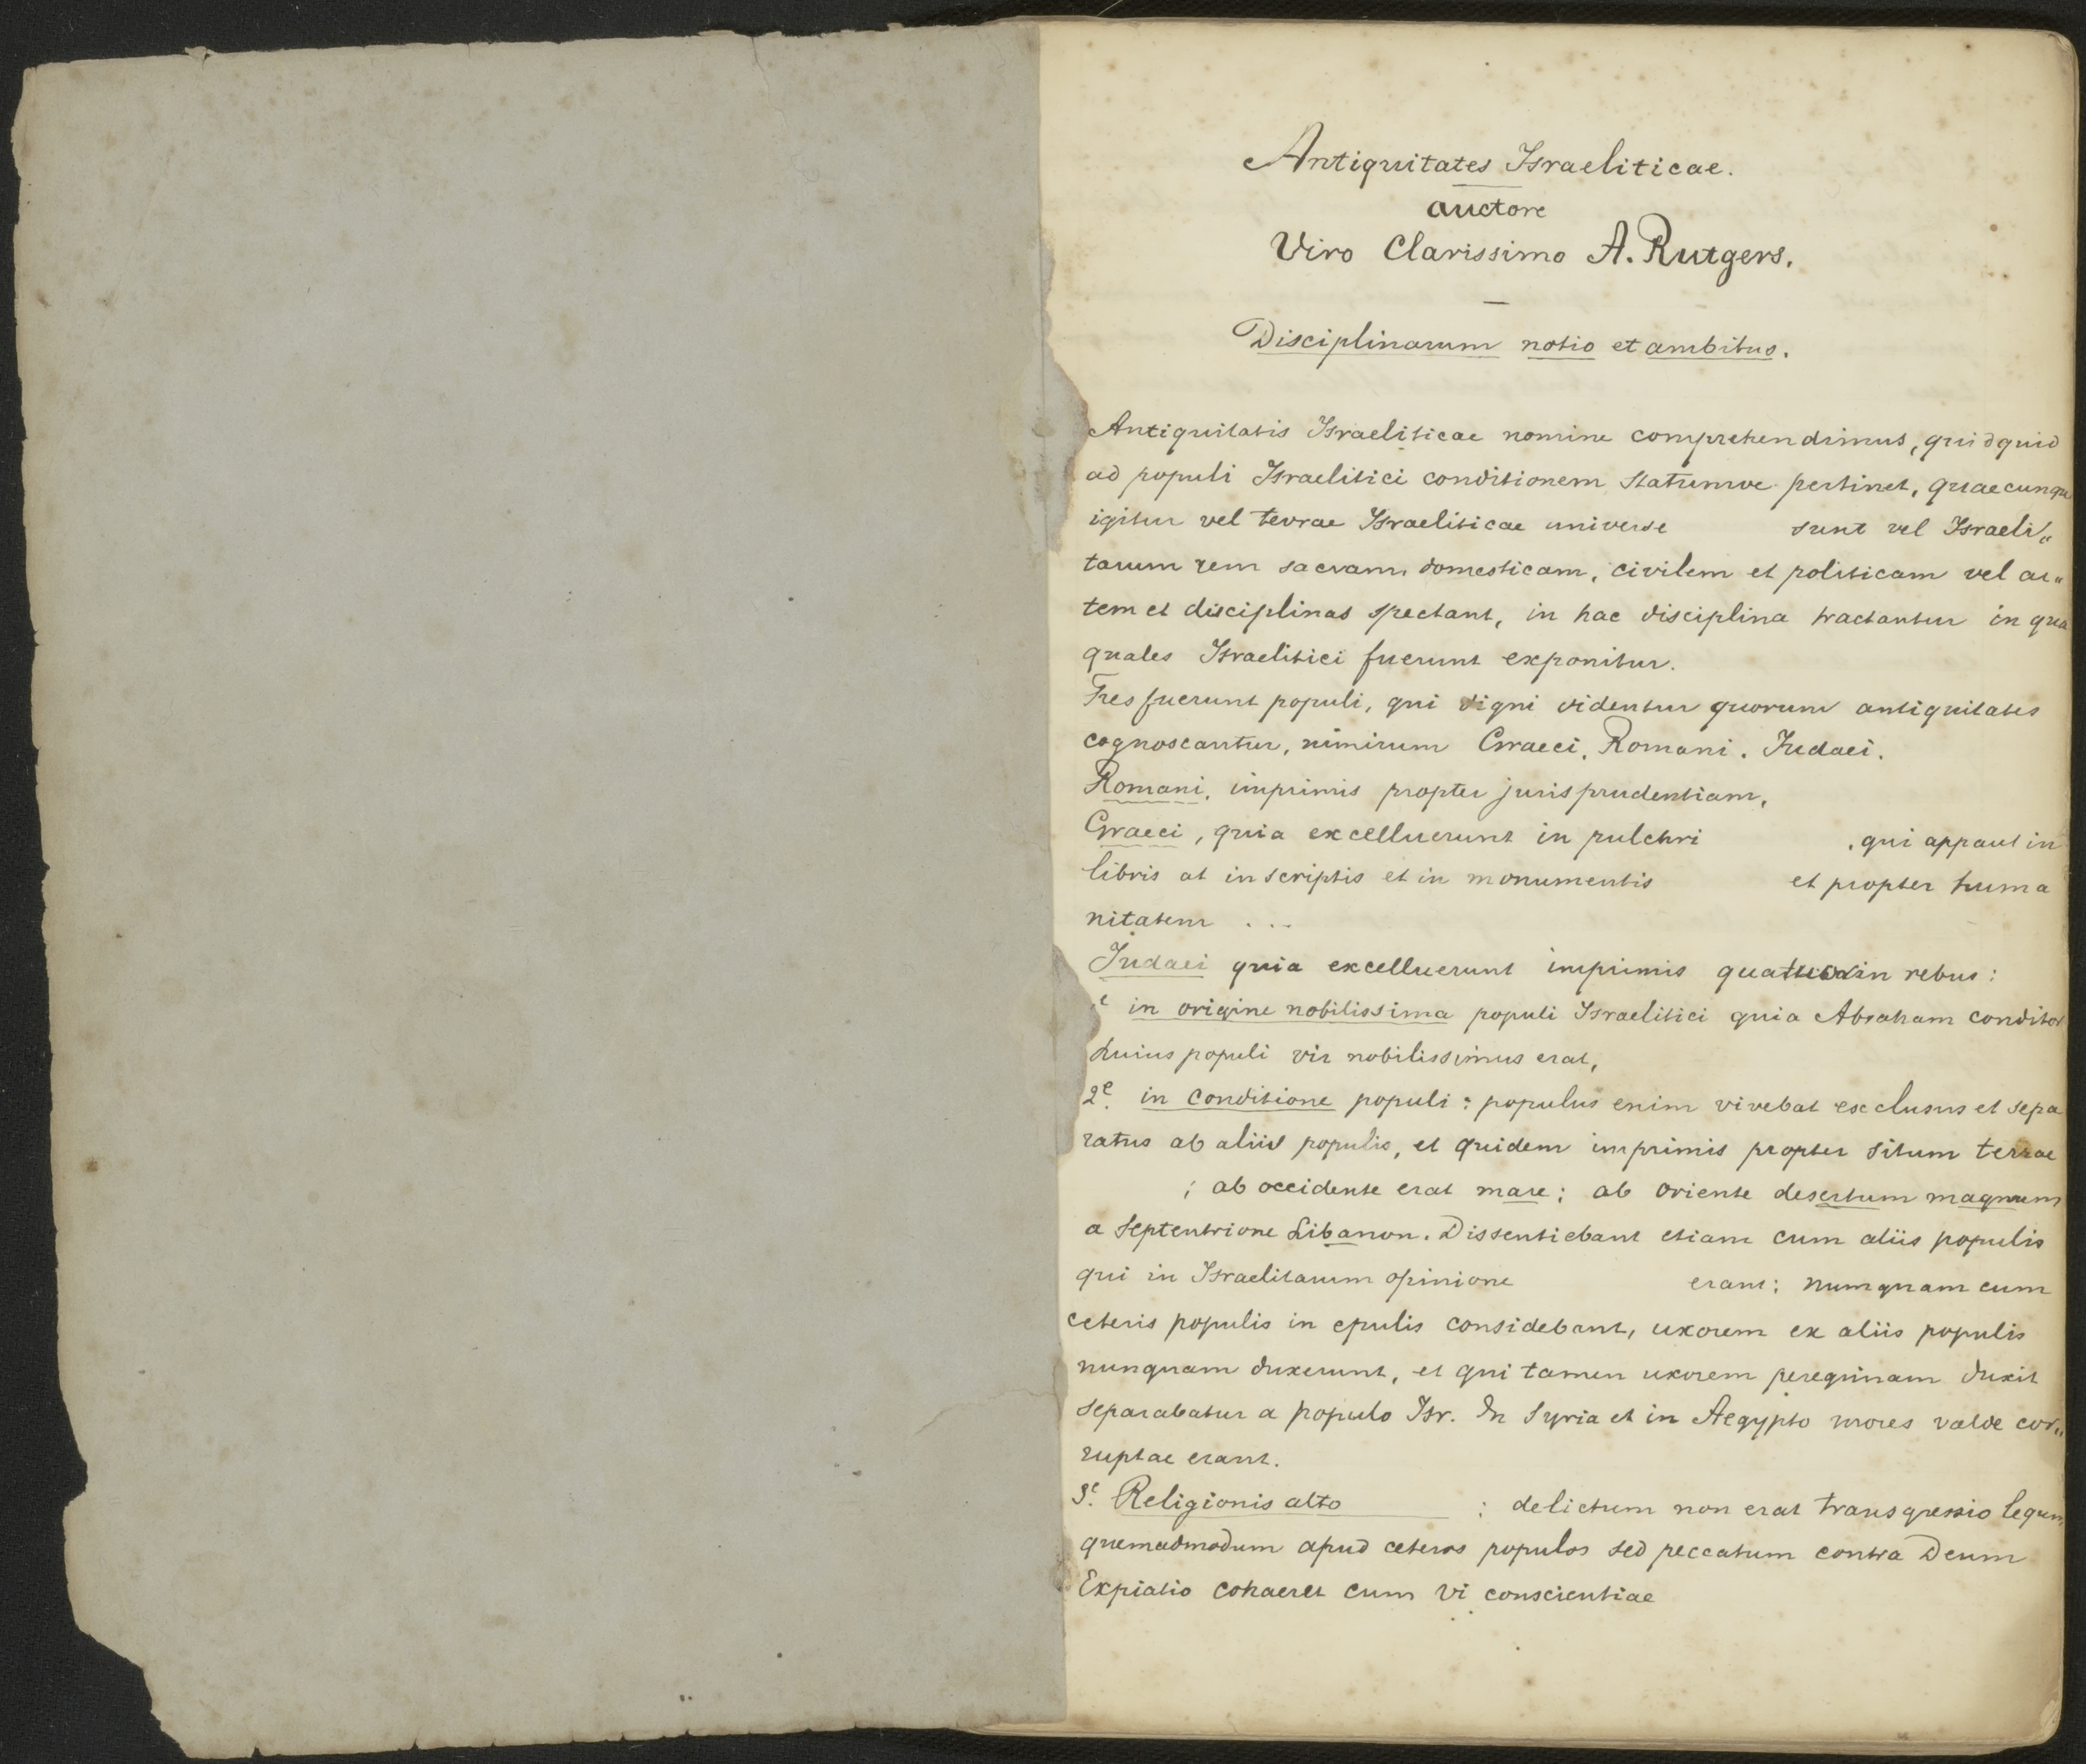 Antiquitates Israeliticae.
auctore
Viro Clarissimo A. Rutgers.
Disciplinarum notio et ambitus.
Antiquitatis Israeliticae nomine comprehendimus, quidquid
ad populi Israelitici conditionem statumve pertinet, quaecunque
igitur vel terrae Israeliticae universe sunt vel Israeli„
tarum rem sacram, domesticam, civilem et politicam vel ar„
tem et disciplinas spectant, in hac disciplina tractantur in qua
quales Israelitici fuerunt exponitur.
Tres fuerunt populi, qui digni videntur quorum antiquitates
cognoscantur, nimirum Graeci, Romani, Judaei.
Romani, imprimis propter jurisprudentiam,
Graeci, quia excelluerunt in pulchri , qui appaut in
libris at inscriptis et in monumentis et propter huma
nitatem ...
Judaei quia excelluerunt imprimis quatuor in rebus:
in origine nobilissima populi Israelitici quia Abraham conditor
huius populi vir nobilissimus erat,
2e. in conditione populi: populus enim vivebat exclusus et sepa
ratus ab aliis populis, et quidem imprimis propter situm terrae
; ab occidente erat mare; ab oriente desertum magnum
a septentrione Libanon. Dissentiebant etiam cum aliis populis
qui in Israelitarum opinione erant: numquam cum
ceteris populis in epulis considebant, uxorem ex aliis populis
nunquam duxerunt, et qui tamen uxorem peregrinam duxit
separabatur a populo Isr. In Syria et in Aegypto mores valde cor„
ruptae erant.
3e. Religionis alto : delictum non erat transgressio legum
quemadmodum apud ceteros populos sed peccatum contra Deum
Expiatio cohaeret cum vi conscientiae